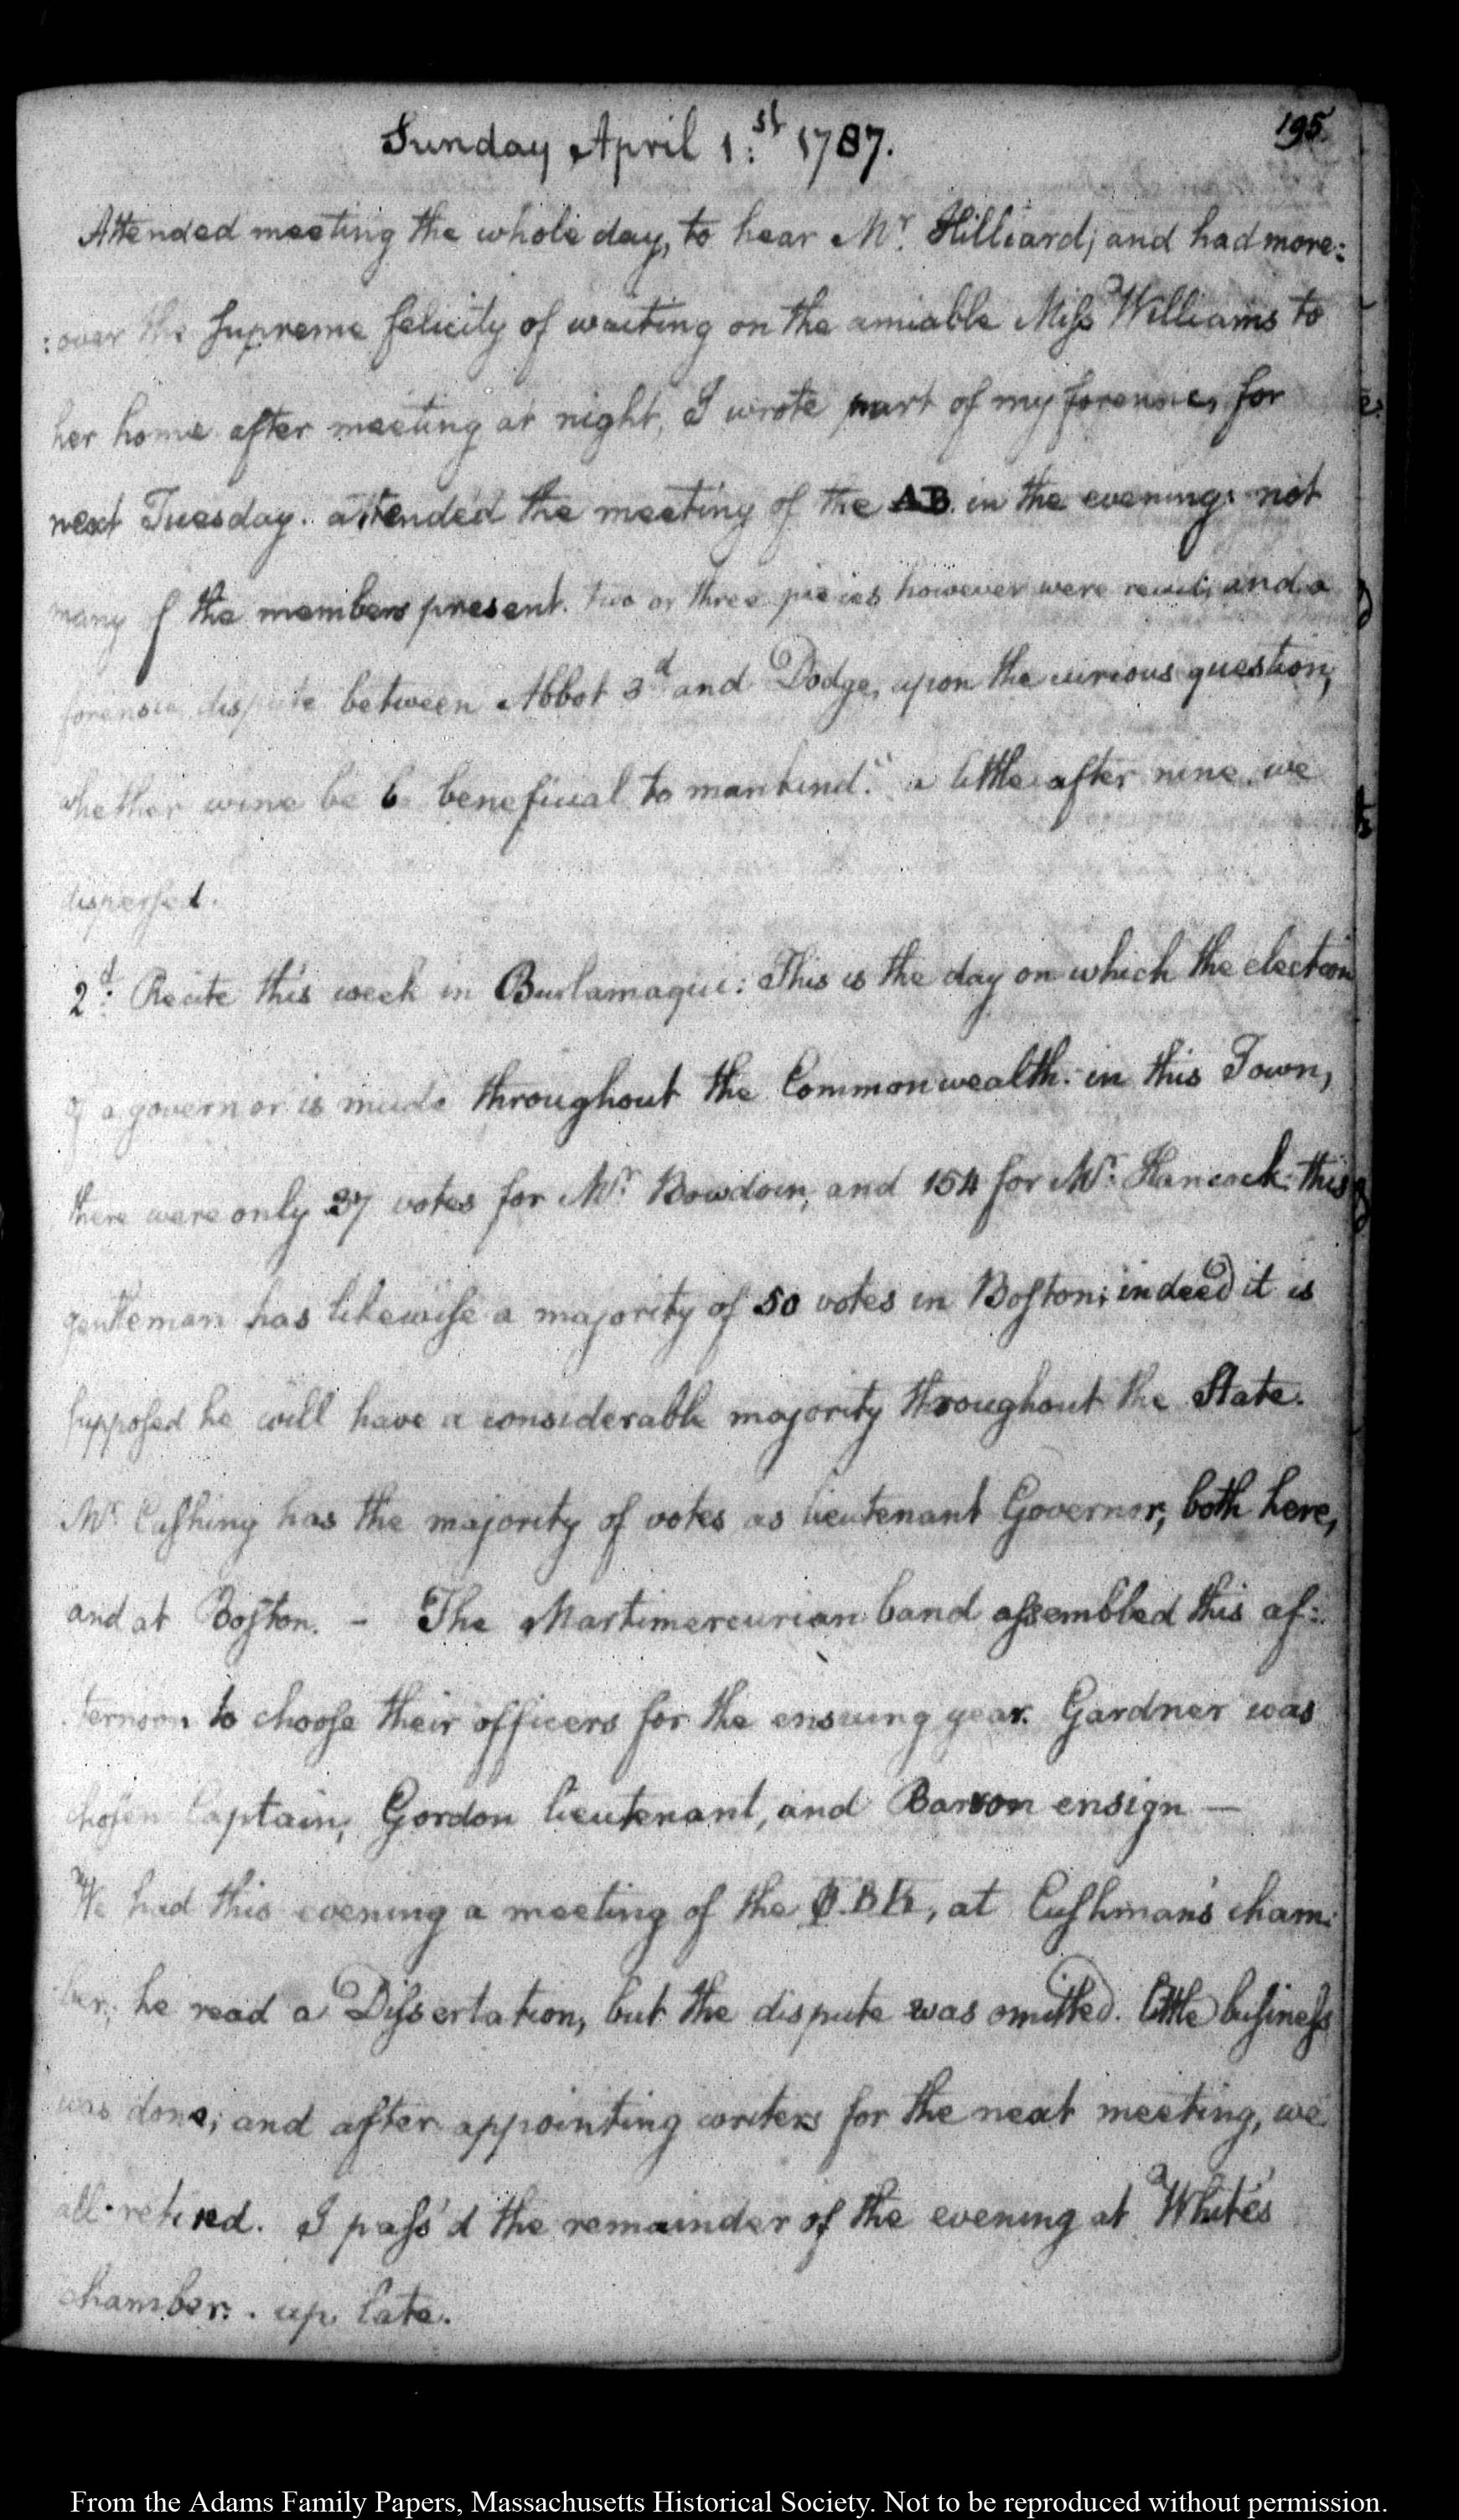 195.
Sunday April 1.st 1787.
Attended meeting the whole day, to hear Mr. Hilliard; and had more:
:over the supreme felicity of waiting on the amiable Miss Williams to
her home after meeting at night, I wrote part of my forensic, for
next Tuesday. attended the meeting of the AB. in the evening: not
many of the members present. two or three pieces however were read; and a
forensic dispute between Abbot 3d and Dodge, upon the curious question,
whether wine be beneficial to mankind." a little after nine we
dispersed.
2d: Recite this week in Burlamaqui: This is the day on which the election
of a governor is made throughout the Commonwealth. in this Town,
there were only 37 votes for Mr. Bowdoin, and 154 for Mr. Hancock. this
gentleman has likewise a majority of 50 votes in Boston; indeed it is
supposed he will have a considerable majority throughout the State.
Mr. Cushing has the majority of votes as lieutenant Governor, both here,
and at Boston. — The Martimercurian band assembled this af:
:ternoon to choose their officers for the ensuing year. Gardner was
chosen Captain, Gordon lieutenant, and Barron ensign —
We had this evening a meeting of the Φ.Β.Κ, at Cushman's cham:
:ber; he read a Dissertation, but the dispute was omitted. little business
was done; and after appointing writers for the next meeting, we
all retired. I pass'd the remainder of the evening at White's
chamber. . up late.
From the Adams Family Papers, Massachusetts Historical Society. Not to be reproduced without permission.